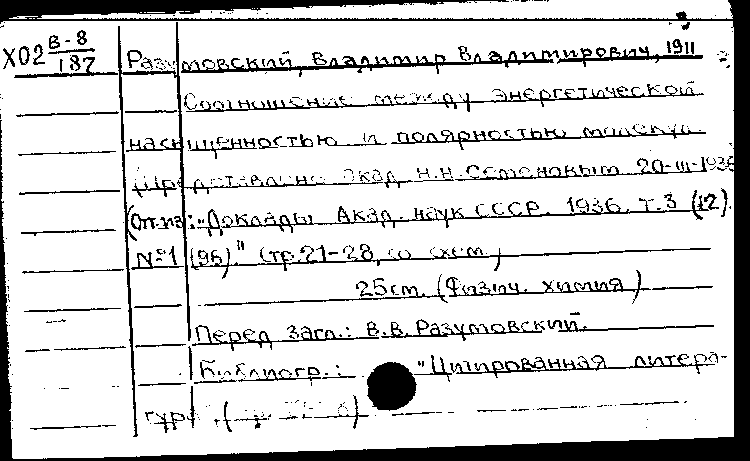 Х02 В-8/187 Разумовский, Владимир Владимирович, 1911
Соотношение между энергетической
насыщенностью и полярностью молекул
(Представлено Акад. Н.Н. Семеновым 20-III-1936
(Отт.из: "Доклады Акад. наук СССР. 1936. т.3 (12).
№1 (96)." (тр.21-28, со схем.)
25см. (Физич. химия)
Перед загл.: В.В. Разумовский.
Библиогр.: "Цитированная литера-
тура"